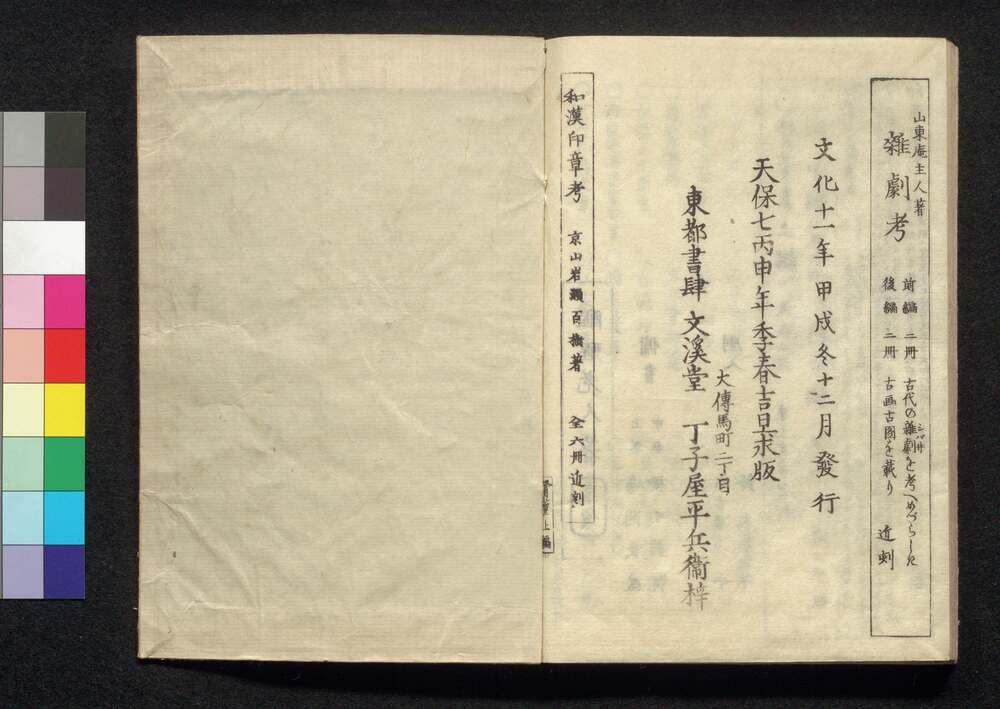 山東庵主人著
雑劇考
前編 二冊 古代の雜劇を考へめづらしき
シバ井
後編 二冊 古画古圖を載り
近刻
文化十一年甲戌冬十二月發行
天保七丙申年季春吉旦求版
大傳馬町二丁目
東都書肆 文溪堂 丁子屋平兵衞梓
和漢印章考 京山岩瀬百樹著 全六冊近刻
上編